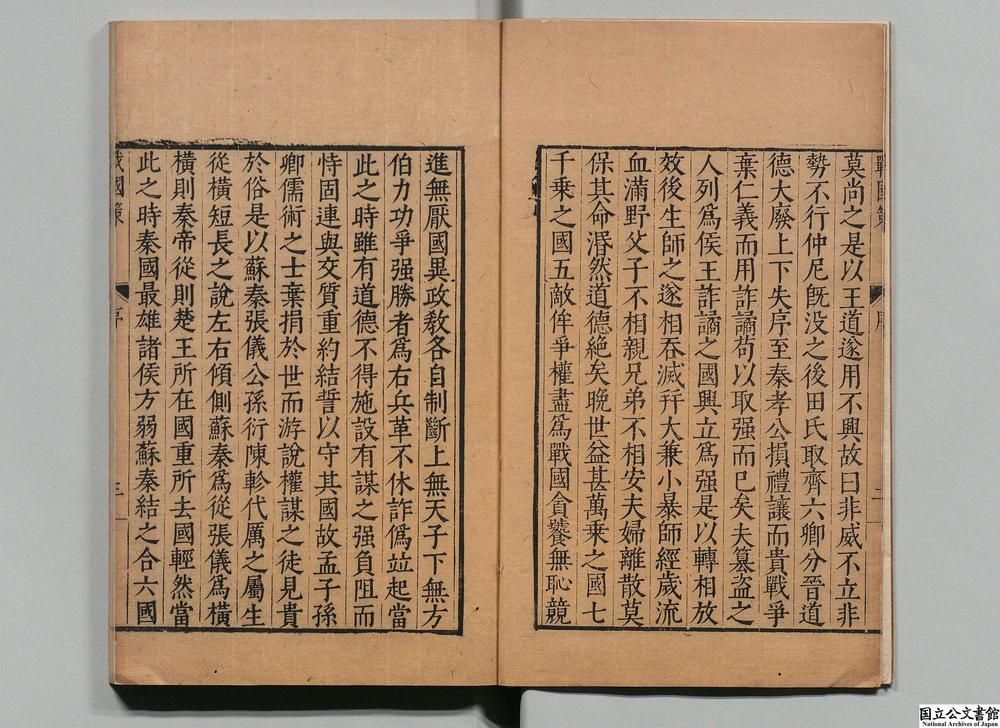 戰國策
二
莫尚之是以王道遂用不興故曰非威不立非
勢不行仲尼旣没之後田氏取齊六卿分晉道
德大廢上下失序至秦孝公損禮讓而貴戰爭
棄仁義而用詐譎苟以取强而已矣夫篡盗之
人列爲侯王詐譎之國興立爲强是以轉相放
效後生師之遂相吞滅幷大兼小暴師經歲流
血滿野父子不相親兄弟不相安夫婦離散莫
保其命湣然道德絶矣晚世益甚萬乘之國七
千乘之國五敵侔爭權盡爲戰國貪饕無恥競
進無厭國異政敎各自制斷上無天子下無方
伯力功爭强勝者爲右兵革不休詐僞竝起當
此之時雖有道德不得施設有謀之强負阻而
恃固連與交質重約結誓以守其國故孟子孫
卿儒術之士棄捐於世而游說權謀之徒見貴
於俗是以蘇秦張儀公孫衍陳軫代厲之屬生
從橫短長之說左右傾側蘇秦爲從張儀爲橫
橫則秦帝從則楚王所在國重所去國輕然當
此之時秦國最雄諸侯方弱蘇秦結之合六國
戰國策
序
三
国立公文書館
National Archives of Japan